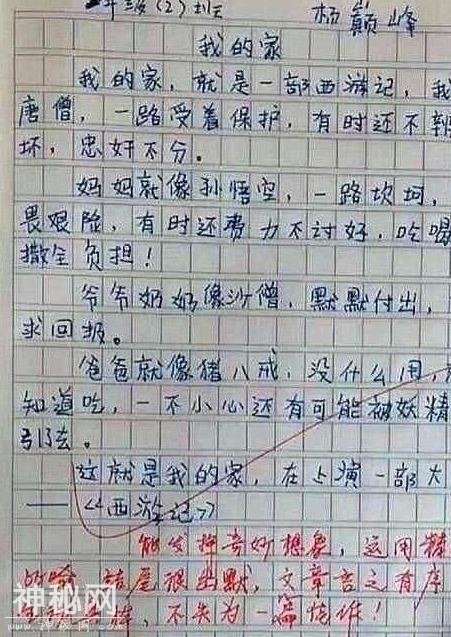 年级(2)班 杨巅峰
我的家
我的家，就是一部西游记，我
唐僧，一路受着保护，有时还不
坏，忠奸不分。
妈妈就像孙悟空，一路坎坷，
畏艰险，有时还费力不讨好，吃喝
撒全负担！
爷爷奶奶像沙僧，默默付出，
求回报。
爸爸就像猪八戒，没什么用，
知道吃，一不小心还有可能被妖精
引去。
这就是我的家，在上演一部大
——《西游记》
能发挥奇妙想象，运用
的喻 结尾很幽默，文章言之有序
不失为一篇佳作！
神秘网